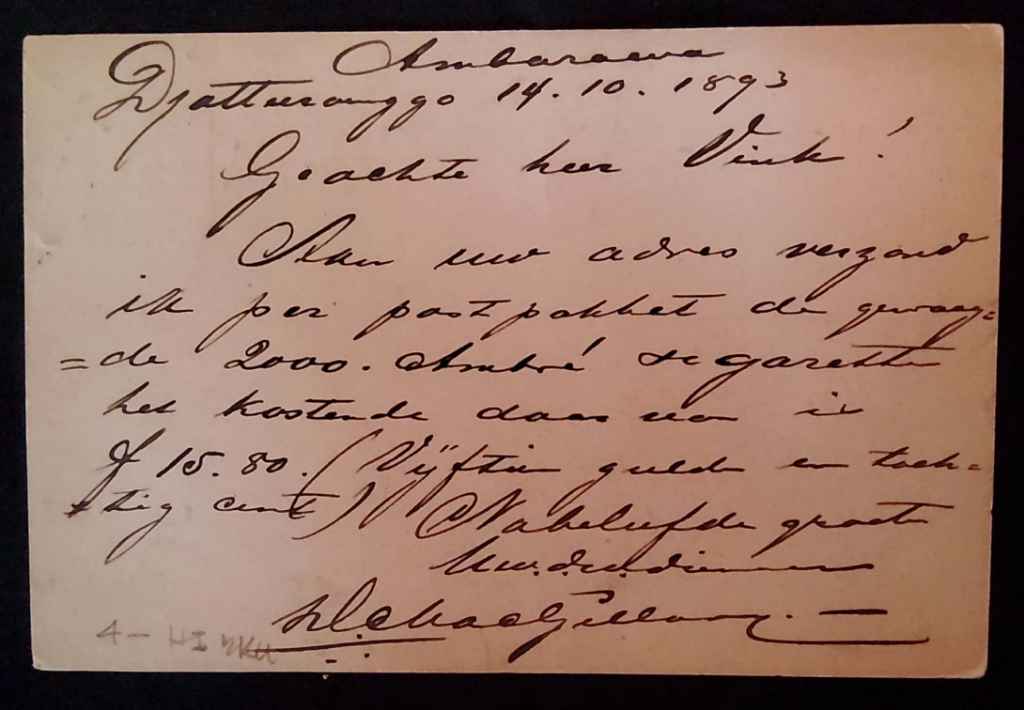 Ambarawa
Djattirونggo 14.10.1893
Geachte heer Vink!
Aan uw adres verzond
ik per postpakket de gevraag=
=de 2000. Ambré segaretten
het kostende daar van is
f 15.80. (Vijftien gulden en tach=
=tig cent) Nabeleefde groete
Uw.d.w.dienaar
MacGillavry.
4 -